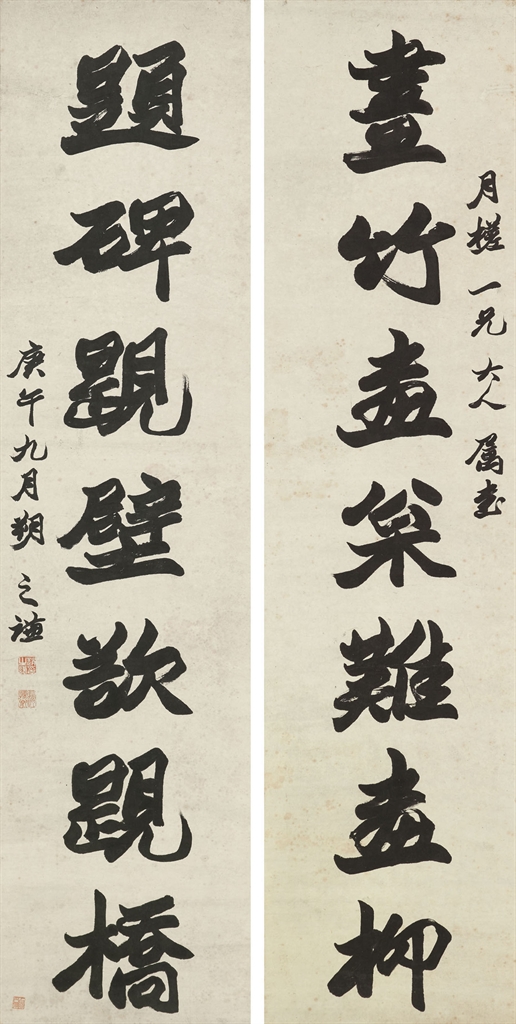 月槎一兄大人屬書
畫竹畫枀難畫柳
題碑䚣壁欲䚣橋
庚午九月朔之謙